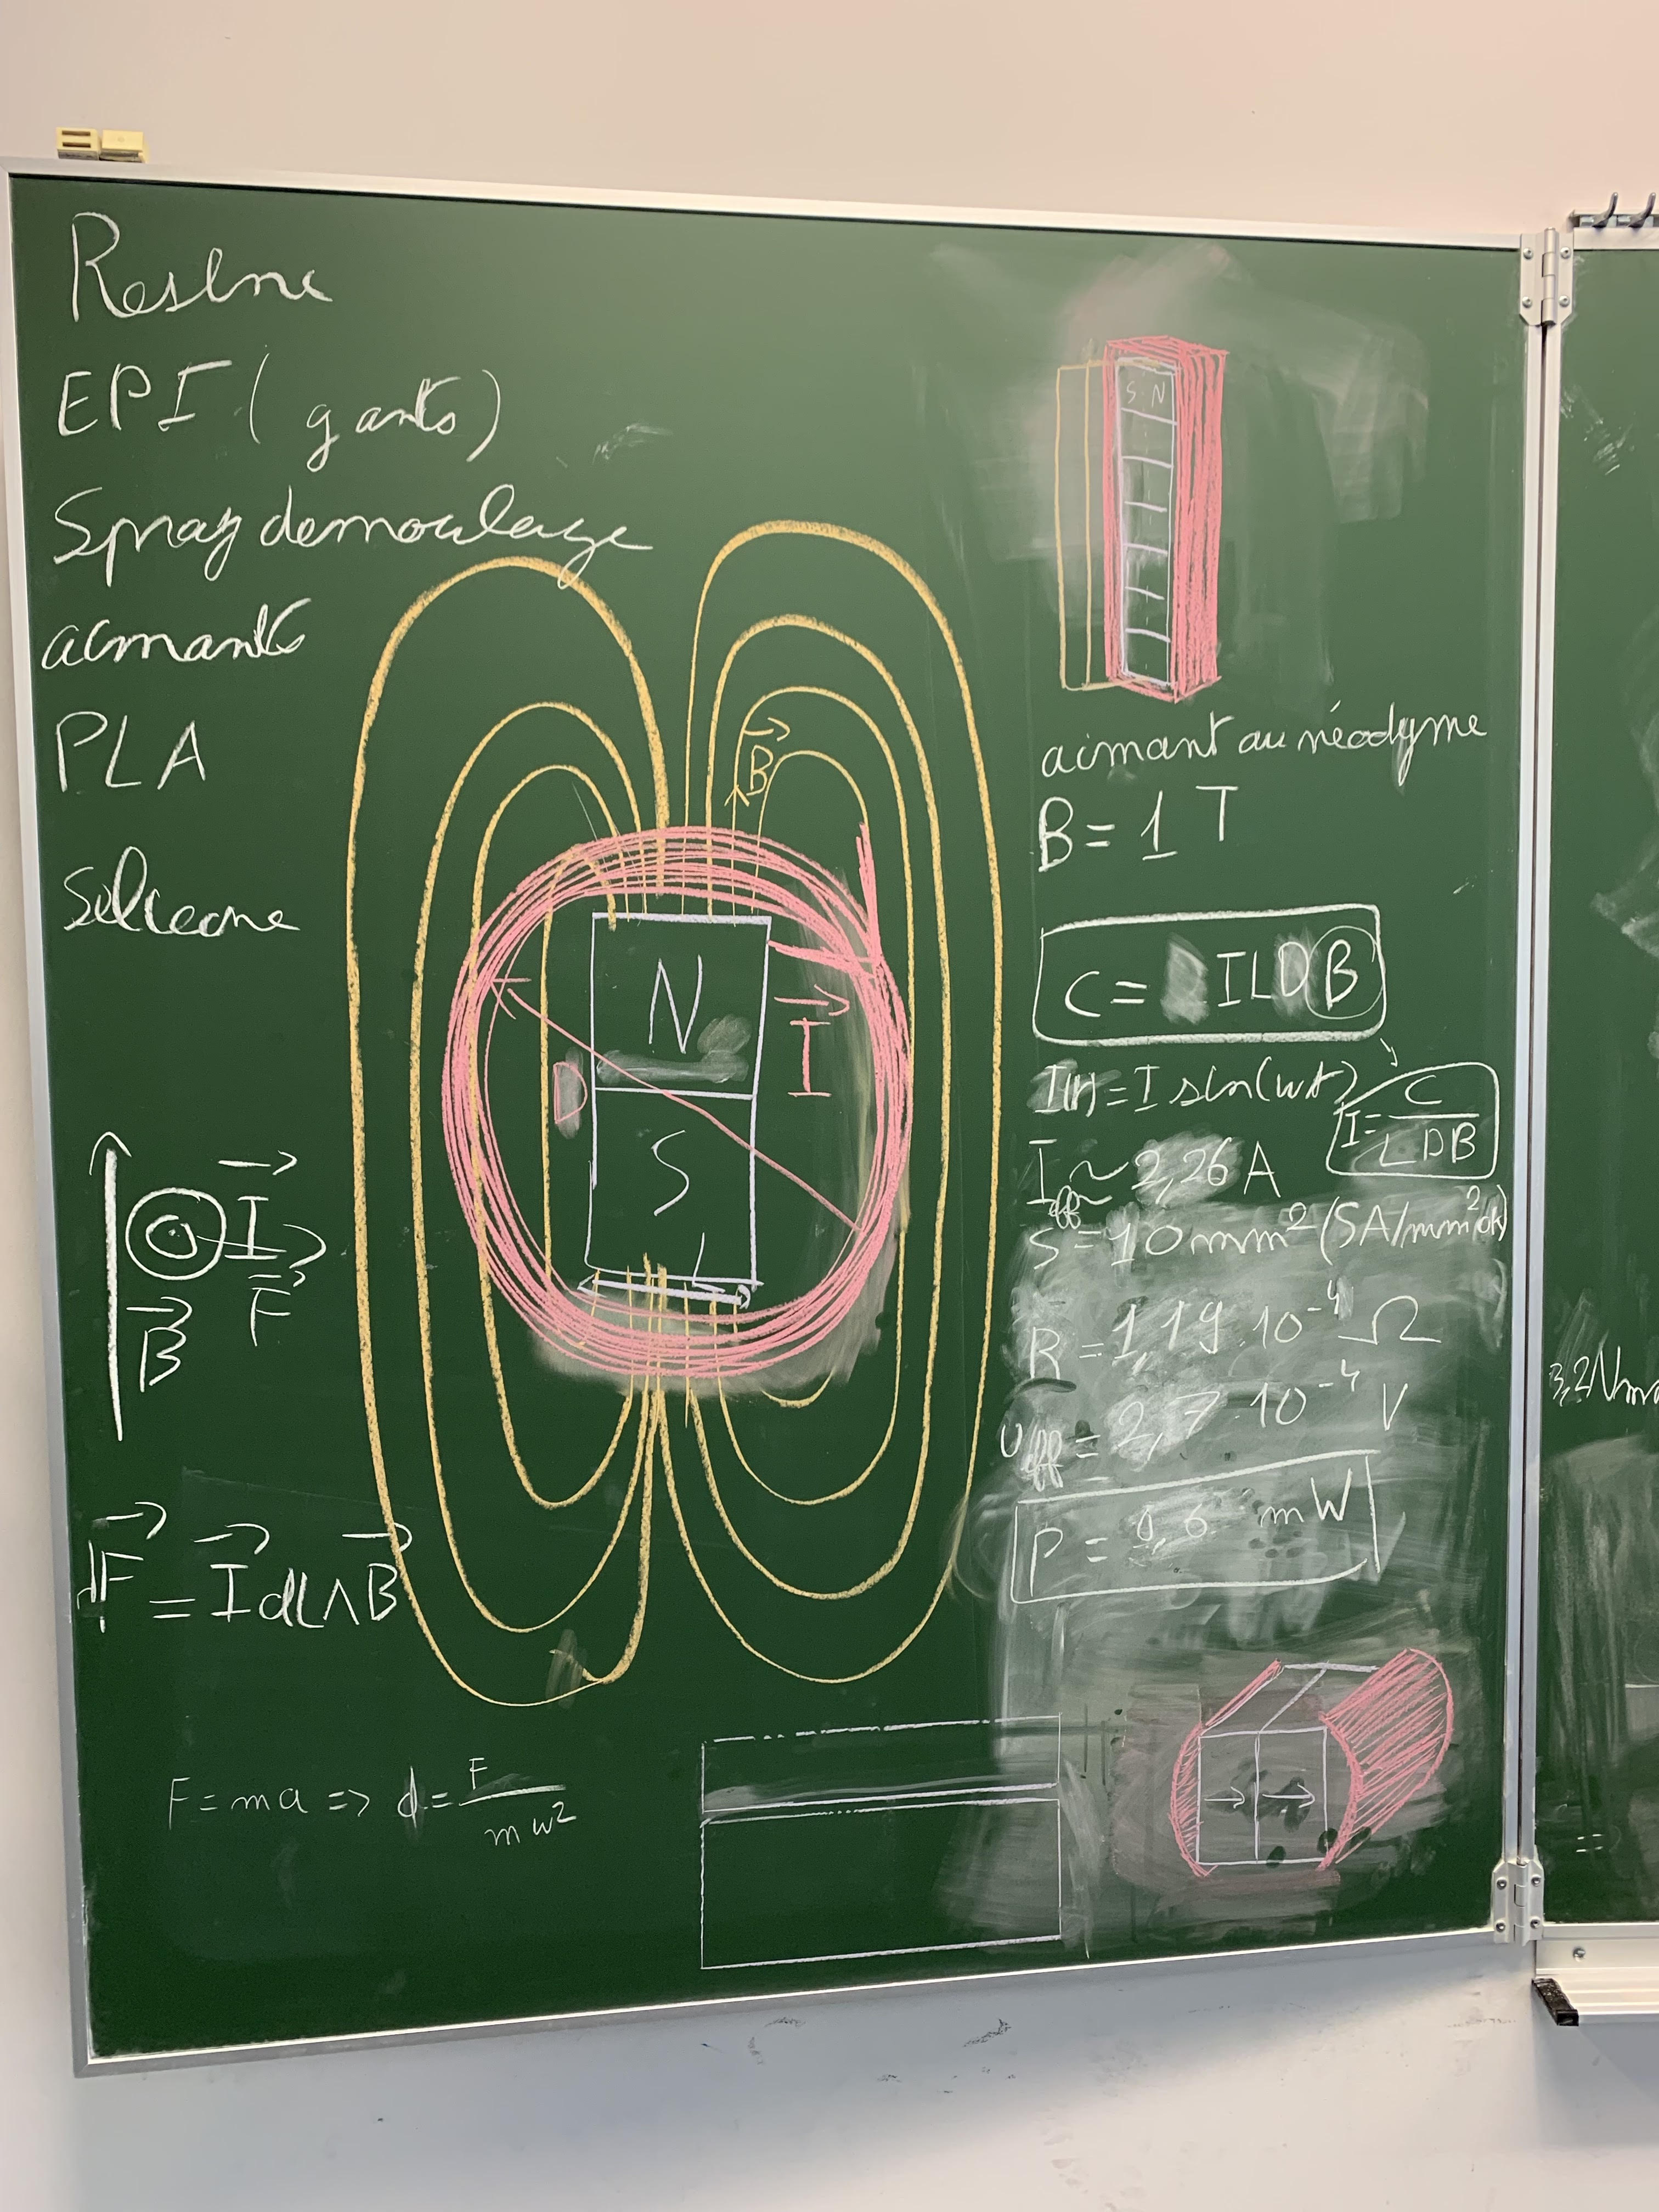 Resine
EPI (gants)
Spray demoulage
aimants
PLA
Silicone
I
B
F
dF = I dl ∧ B
F = ma => d = F / mω²
B
N
S
D
I
S N
aimant au néodyme
B = 1 T
C = ILDB
I(t) = I sin(ωt)
I = C / LDB
Ieff ~ 2,26 A
S = 10 mm² (5A/mm² ok)
R = 1,19 . 10⁻⁴ Ω
Ueff = 2,7 . 10⁻⁴ V
P = 0,6 mW
3,2 Nm
=